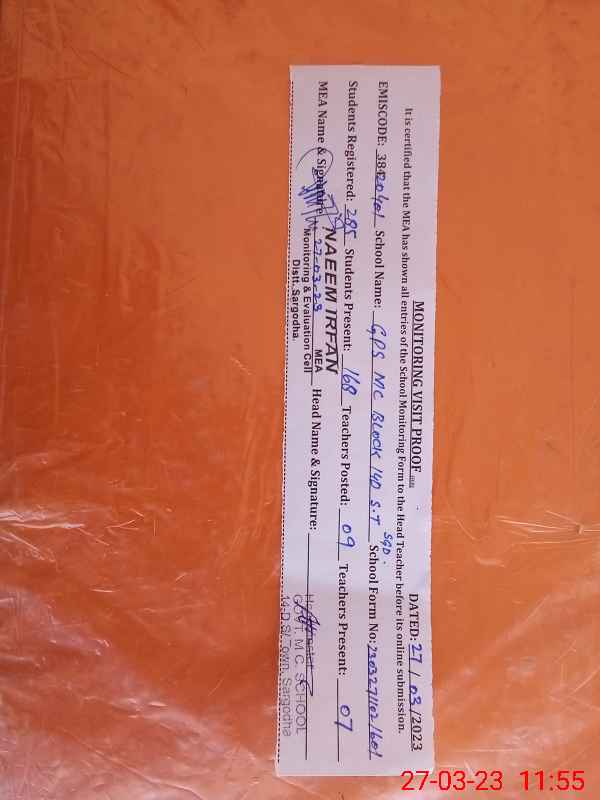 MONITORING VISIT PROOF DATED: 27/03/2023
It is certified that the MEA has shown all entries of the School Monitoring Form to the Head Teacher before its online submission.
EMISCODE: 38420401 School Name: GPS MC BLOCK 14D S.T SGD. School Form No: 23032711021601
Students Registered: 285 Students Present: 168 Teachers Posted: 09 Teachers Present: 07
MEA Name & Signature 27-03-23 Head Name & Signature:
NAEEM IRFAN
MEA
Monitoring & Evaluation Cell
Distt. Sargodha
Headmaster
GOVT. M.C. SCHOOL
14-D.S/.Town, Sargodha
27-03-23 11:55